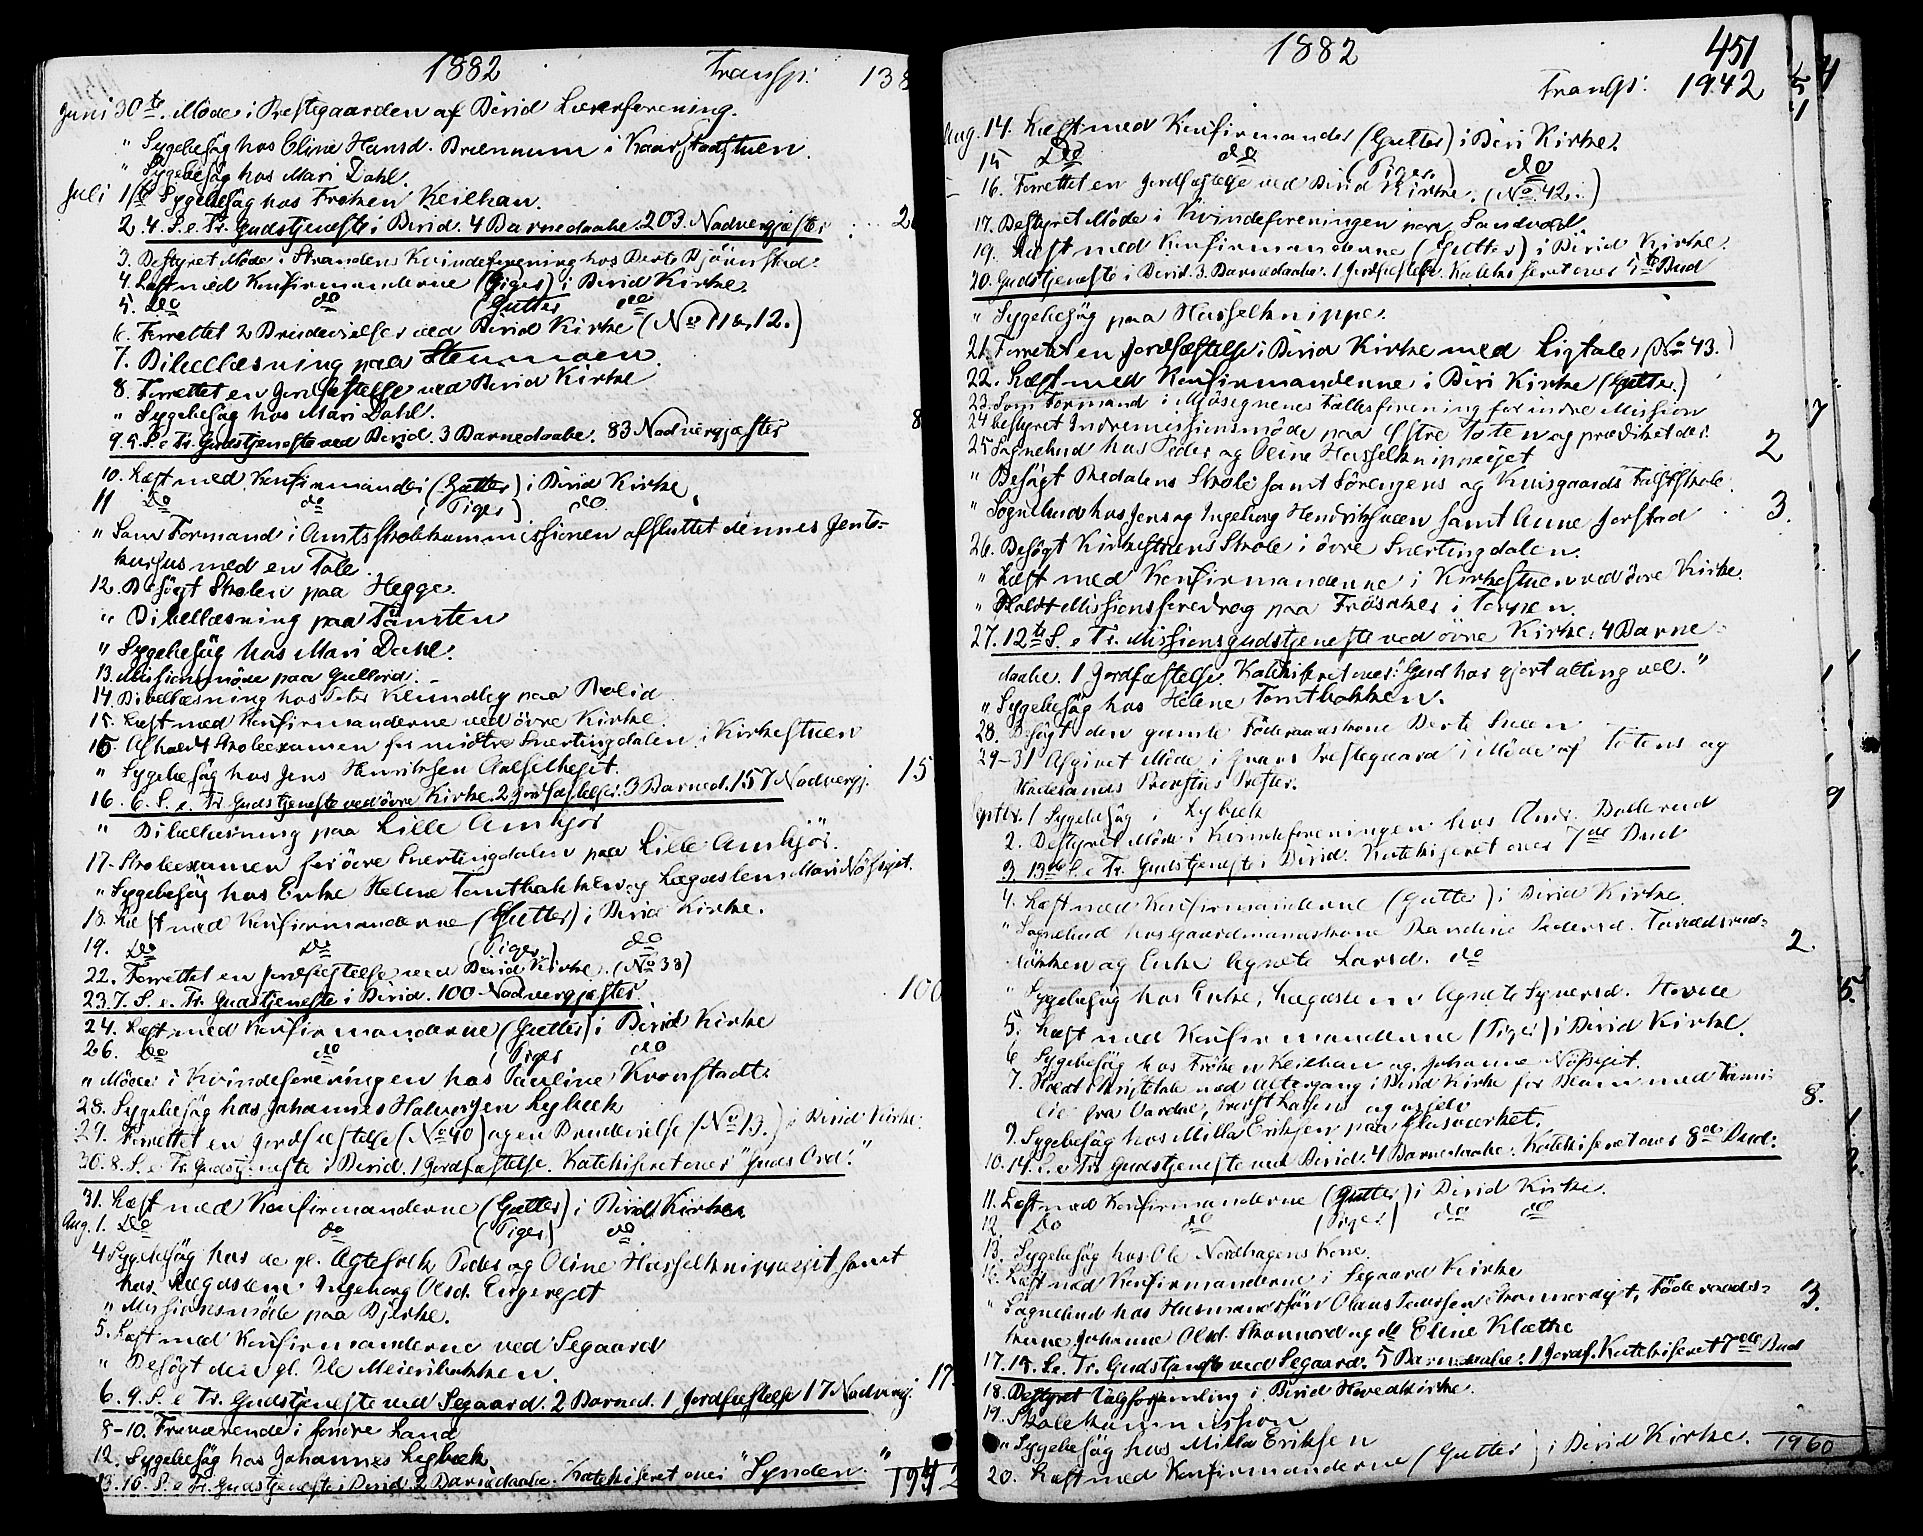 1882 Transp: 138
Juni 30te. Møde i Prestegaarden af Birid Lærerforening.
" Sygebesøg hos Oline Hansd. Brænnum i Kaarstadstuen.
" Sygebesøg hos Mari Dahl.
Juli 1ste Sygebesøg hos Frøken Keilhau.
2. 4. S. e. Tr. Gudstjeneste i Birid. 4 Barnedaabe. 203 Nadvergjæster 2
3. Bestyret Møde i Strandens Kvindeforening hos Berte Bjørnstad.
4. Læst med Konfirmanderne (Piger) i Birid Kirke.
5. Do do (Gutter do
6. Forrettet 2 Brudevielser ved Birid Kirke (No 11 & 12.)
7. Bibellæsning paa Stenmoen.
8. Forrettet en Jordfæstelse ved Birid Kirke
" Sygebesøg hos Mari Dahl.
9. 5. S. e. Tr. Gudstjeneste ved Birid. 3 Barnedaabe. 83 Nadvergjæster 8
10. Læst med Konfirmander (Gutter) i Birid Kirke.
11 Do do (Piger) do.
" Som Formand i Amtsskolekommissionen afsluttet dennes Jente-
kursus med en Tale.
12. Besøgt Skolen paa Hegge.
" Bibellæsning paa Tømten
" Sygebesøg hos Mari Dahl.
13. Missionsmøde paa Gullord.
14. Bibellæsning hos Peter Klundby paa Bolid
15. Læst med Konfirmanderne ved øvre Kirke.
15. Afholdt Skoleexamen for midtre Snertingdalen i Kirkestuen
" Sygebesøg hos Jens Henriksen 15
16. 6. S. e. Tr. Gudstjeneste ved øvre Kirke. 2 Jordfæstelser. 3 Barned. 157 Nadvergj.
" Bibellæsning paa Lille Amkjør
17. Skoleexamen for øvre Snertingdalen paa Lille Amkjør.
" Sygebesøg hos Enke Helene Tomtbakken og Lægdslem Mari Nøssejet.
18. Læst med Konfirmanderne (Gutter) i Birid Kirke.
19. Do Do (Piger) do
22. Forrettet en Jordfæstelse ved Birid Kirke. (No 38)
23. 7. S. e. Tr. Gudstjeneste i Birid. 100 Nadvergjæster. 100
24. Læst med Konfirmanderne (Gutter) i Birid Kirke
26. Do do (Piger do
" Møde i Kvindeforeningen hos Pauline Kronstadt.
28. Sygebesøg hos Johannes Halvorsen Lybæk
29. Forrettet en Jordfæstelse (No 40) og en Brudevielse (No 13.) i Birid Kirke.
30. 8. S. e. Tr. Gudstjeneste i Birid. 1 Jordfæstelse. Katekiseret over "Guds Ord."
31. Læst med Konfirmanderne (Gutter) i Birid Kirke.
Aug. 1. Do do (Piger) do.
4 Sygebesøg hos de gl. Ægtefolk Peder og Oline Hasselknippejet samt
hos Lægdslem Ingeborg Olsd. Engerejet
" Missionsmøde paa Bjerke.
5. Læst med Konfirmanderne ved Segaard
" Besøgt den gl. Ole Meieribakken.
6. 9. S. e. Tr. Gudstjeneste ved Segaard. 2 Barned. 1 Jordfæstelse 17 Nadvergj. 17.
8-10. Fraværende i søndre Land
12. Sygebesøg hos Johannes Lybæk
13. 10. S. e. Tr. Gudstjeneste i Birid. 2 Barnedaabe. Katekiseret over "Synden." 1942
1882 451
Transp: 1942
Aug. 14. Læst med Konfirmander (Gutter) i Biri Kirke.
15 Do do (Piger) do
16. Forrettet en Jordfæstelse ved Birid Kirke. (No 42.)
17. Bestyret Møde i Kvindeforeningen paa Sandvold
19. Læst med Konfirmanderne (Gutter) i Birid Kirke.
20. Gudstjeneste i Birid. 3. Barnedaabe. 1 Jordfæstelse. Katekiseret over 5te Bud
" Sygebesøg paa Hasselknippe.
21. Forrettet en Jordfæstelse i Birid Kirke med Ligtale, (No 43.)
22. Læst med Konfirmanderne i Biri Kirke (Gutter.)
23. Som Formand i Mjøsegnenes Fællesforening for indre Mission
24 bestyret Indremissionsmøde paa Østre Toten og prædiket der.
25 Sognebud hos Peder og Oline Hasselknippejet 2
" Besøgt Bredalens Skole samt Sørengens og Kuisgaards Fastskole.
" Sognebud hos Jens og Ingeborg Hendriksveen samt Anne Jorstad 3.
26. Besøgt Kirkestuens Skole i øvre Snertingdalen.
" Læst med Konfirmanderne i Kirkestuen ved øvre Kirke.
" Holdt Missionsforedrag paa Frøsaker i Torpen.
27. 12te S. e. Tr. Missionsgudstjeneste ved øvre Kirke. 4 Barne-
daabe. 1 Jordfæstelse. Katekiseret over: "Gud har gjort alting vel."
" Sygebesøg hos Helene Tomtbakken.
28. Besøgt den gamle Føderaadskone Berte Sveen
29-31 Afgivet Møde i Grans Prestegaard i Møde af Totens og
Hadelands Provstis Prester.
Septbr. 1 Sygebesøg i Lybæk
2. Bestyret Møde i Kvindeforeningen hos Andr. Ballerud
3. 13de S. e. Tr. Gudstjeneste i Birid. Katekiseret over 7de Bud
4. Læst med Konfirmanderne (Gutter) i Birid Kirke.
" Sognebud hos Gaardmandskone Randine Pedersd.
og Enke Agnete Larsd. do 2.
" Sygebesøg hos Enke, Lægdslem Agnete Syversd. Hovde
5. Læst med Konfirmanderne (Piger) i Birid Kirke.
6 Sygebesøg hos Frøken Keilhau og Johanne Nøssejet.
7. Holdt Skriftetale med Altergang i Birid Kirke for Blom med Fami-
lie fra Vardal, Provst Lassens og os selv 8.
9. Sygebesøg hos Milla Eriksen paa Glasværket.
10. 14. S. e. Tr. Gudstjeneste ved Birid. 4 Barnedaabe. Katekiseret over 8de Bud.
11. Læst med Konfirmanderne (Gutter) i Birid Kirke.
12. Do do (Piger) do do
13. Sygebesøg hos Ole Nordhagens Kone.
16. Læst med Konfirmanderne i Segaard Kirke
" Sognebud hos Husmandssøn Olaus Pedersen Føderaads- 3.
kone Johanne Olsd. og do Eline Klæthe
17. 15. S. e. Tr. Gudstjeneste ved Segaard. 5 Barnedaabe. 1 Jordf. Katekiseret 7de Bud
18. Bestyret Valgforsamling i Birid Hovedkirke.
19. Skolekommission
" Sygebesøg hos Milla Eriksen
20. Læst med Konfirmanderne (Gutter) i Birid Kirke. 1960